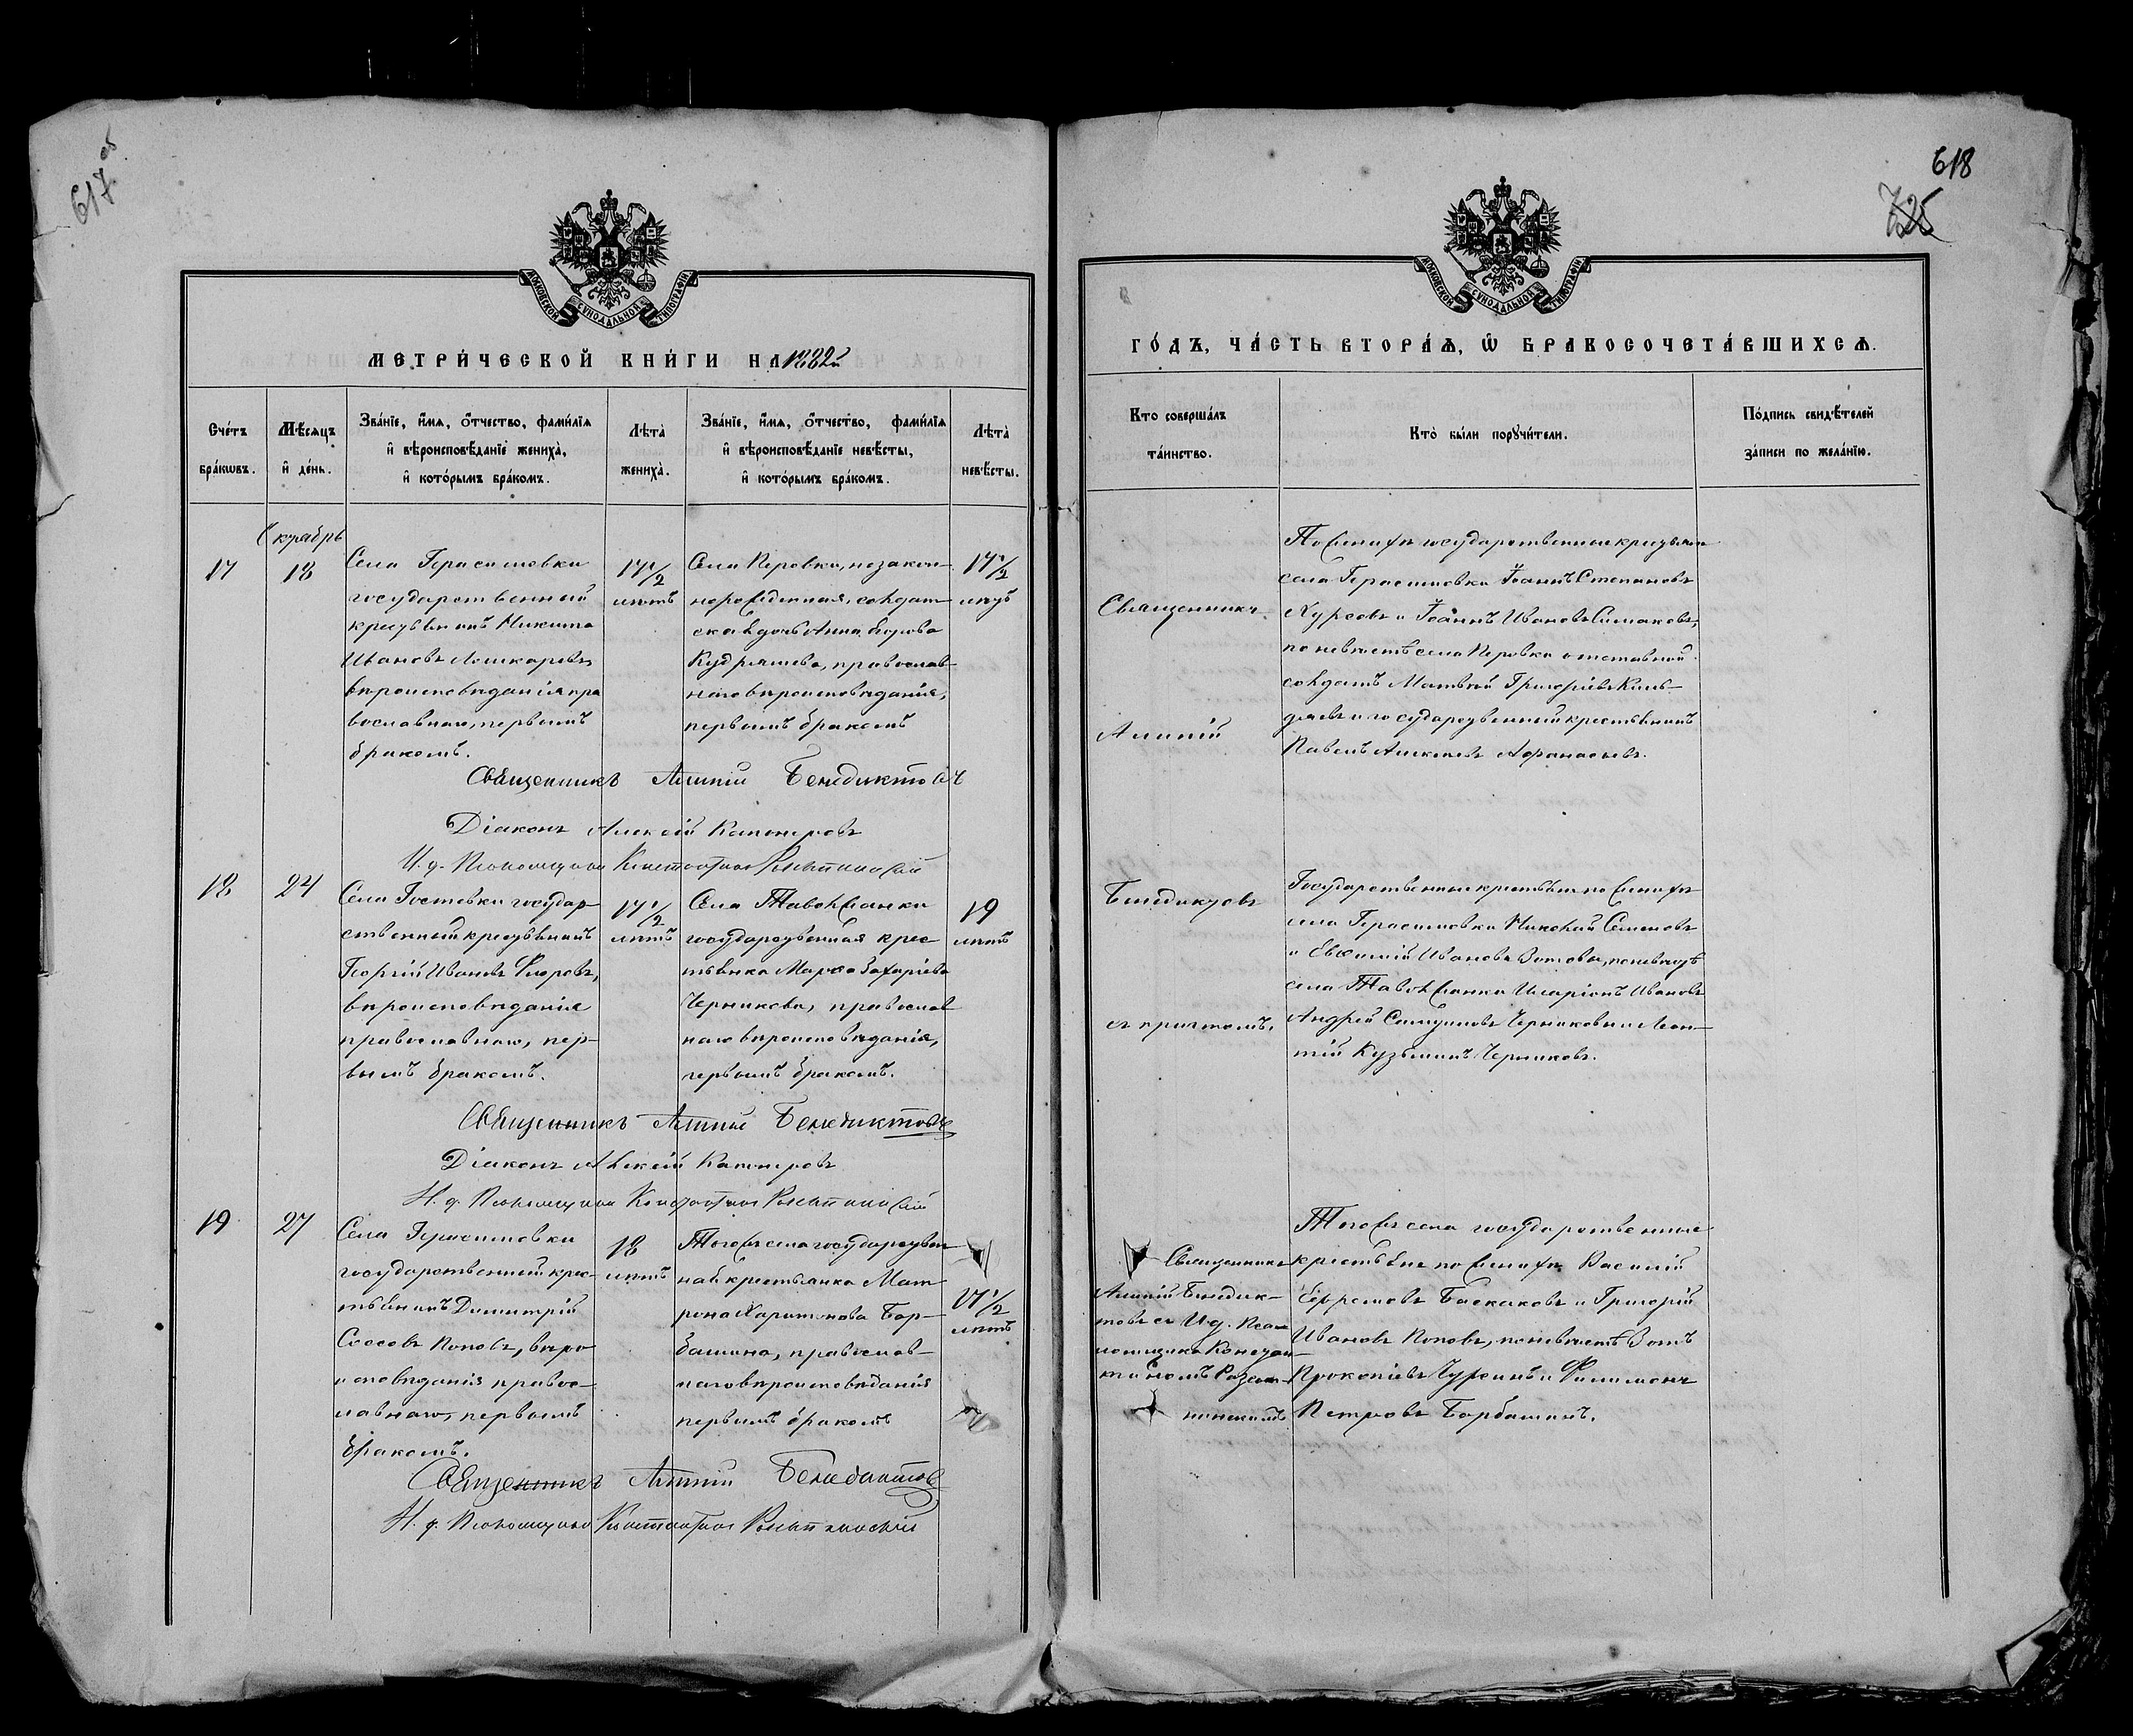 617 об
МОСКОВСКОЙ СѴНОДАЛЬНОЙ ТИПОГРАФІИ
МЕТРИ́ЧЕСКОЙ КНИ́ГИ НА 1882й
Сче́тъ бра́кωвъ.
Мѣ́сяцъ и҆ де́нь.
Зва́нїе, и҆́мя, ѻ҆́тчество, фами́лїя
и҆ вѣроисповѣ́данїе жениха̀,
и҆ кото́рымъ бра́комъ.
Лѣ́та жениха̀.
Зва́нїе, и҆́мя, ѻ҆́тчество, фами́лїя
и҆ вѣроисповѣ́данїе невѣ́сты,
и҆ кото́рымъ бра́комъ.
Лѣ́та невѣ́сты.
Октябрь
17
18
Села Герасимовки
государственный
крестьянинъ Никита
Ивановъ Лошкаревъ,
вѣроисповѣданія пра
вославнаго, первымъ
бракомъ.
17 1/2
лѣтъ
Села Перовки, незакон-
норожденная, солдат-
ская дочь Анна
Кудряшева, православ-
наго вѣроисповѣданія,
первымъ бракомъ
17 1/2
лѣтъ
Священникъ Алипій Бенедиктовъ
Діаконъ Алексій
И. д. Псаломщика
18
24
Села государ-
ственный крестьянинъ
Георгій Ивановъ Фроловъ,
вѣроисповѣданія
православнаго, пер-
вымъ бракомъ.
17 1/2
лѣтъ
Села Тавολжанки
государственная крес-
тьянка Марѳа Захаріева
Черникова, православ
наго вѣроисповѣданія,
первымъ бракомъ.
19
лѣтъ
Священникъ Алипій Бенедиктовъ
Діаконъ Алексій
И. д. Псаломщика
19
27
Села Герасимовки
государственный крес-
тьянинъ Димитрій
Поповъ, вѣро
исповѣданія правос-
лавнаго, первымъ
бракомъ.
18
лѣтъ
Тогожъ села государствен
ная крестьянка Мат
рона Харитонова Бар-
башина, православ-
наго вѣроисповѣданія
первымъ бракомъ
17 1/2
лѣтъ
Священникъ Алипій Бенедиктовъ
И. д. Псаломщика
618
725
МОСКОВСКОЙ СѴНОДАЛЬНОЙ ТИПОГРАФІИ
ГО́ДЪ, ЧА́СТЬ ВТОРА́Ѧ, Ѽ БРАКОСОЧЕТА́ВШИХСѦ.
Кто̀ соверша́лъ
та́инство.
Кто̀ бы́ли порꙋчи́тели.
По́дпись свидѣ́телей
за́писи по жела́нїю.
Священникъ
Алипій
По женихѣ государственные крестьяне
села Герасимовки Іоаннъ Степановъ
и Іоаннъ Ивановъ Симаковъ,
по невѣстѣ села Перовки отставной
солдатъ Матвѣй Григорьевъ Киль-
дяевъ и государственный крестьянинъ
Павелъ Алексѣевъ Афанасьевъ.
Бенедиктовъ
съ причтомъ.
Государственные крестьяне по женихѣ
села Герасимовки Николай Семеновъ
и Евѳимій Ивановъ Зотовы, по невѣстѣ
села Тавολжанки Иларіонъ Ивановъ
Андрей Черниковы и Леон-
тій Кузьминъ Черниковъ.
Священникъ
Алипій Бенедик-
товъ съ И. д. Псал-
омщика Констан-
тиномъ
Тогожъ села государственные
крестьяне по женихѣ Василій
Ефремовъ Баскаковъ и Григорій
Ивановъ Поповъ, по невѣстѣ Зотъ
Прокопіевъ и Филимонъ
Петровъ Барбашинъ.